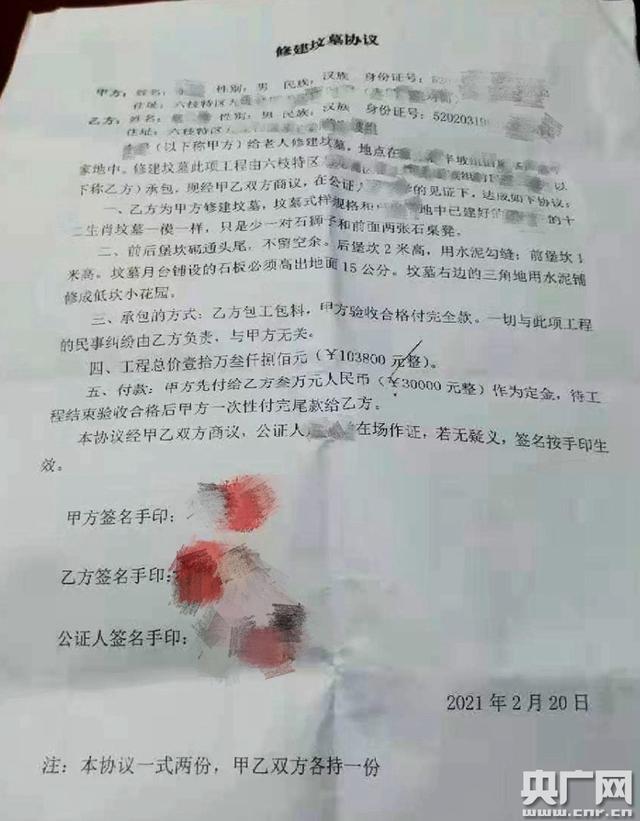 修建坟墓协议
甲方：姓名： 性别：男 民族：汉族 身份证号：52
住址：六枝特区
乙方：姓名： 性别：男 民族：汉族 身份证号：52020319
住址：六枝特区
（以下称甲方）给老人修建坟墓，地点在
家地中。修建坟墓此项工程由六枝特区 以
下称乙方）承包，现经甲乙双方商议，在公证人 的见证下，达成如下协议：
一、乙方为甲方修建坟墓，坟墓式样规格和 地中已建好的 的十
二生肖坟墓一模一样，只是少一对石狮子和前面两张石桌凳。
二、前后堡坎砌通头尾，不留空余。后堡坎2米高，用水泥勾缝；前堡坎1
米高。坟墓月台铺设的石板必须高出地面15公分。坟墓右边的三角地用水泥铺
修成低坎小花园。
三、承包的方式：乙方包工包料，甲方验收合格付完全款。一切与此项工程
的民事纠纷由乙方负责，与甲方无关。
四、工程总价壹拾万叁仟捌佰元（￥103800元整）。
五、付款：甲方先付给乙方叁万元人民币（￥30000元整）作为定金，待工
程结束验收合格后甲方一次性付完尾款给乙方。
本协议经甲乙双方商议，公证人 在场作证，若无疑义，签名按手印生
效。
甲方签名手印：
乙方签名手印：
公证人签名手印：
2021年2月20日
注：本协议一式两份，甲乙双方各持一份
央广网
www.cnr.cn